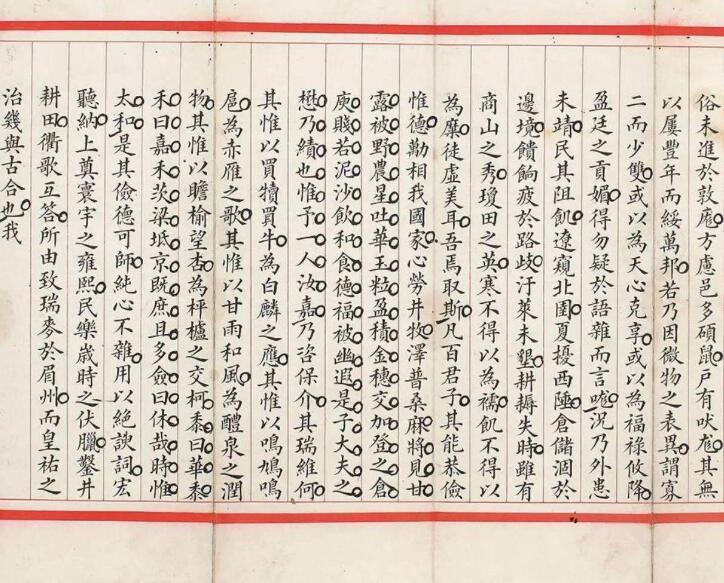 俗未進於敦龐方慮邑多碩鼠戶有吠尨其無
以屢豐年而綏萬邦若乃因微物之表異謂寡
二而少雙或以為天心克享或以為福祿攸降
盈廷之貢媚得勿疑於語雜而言哤況乃外患
未靖民其阻飢遼窺北圉夏擾西陲倉儲涸於
邊境饋餉疲於路歧汙萊未墾耕耨失時雖有
商山之秀瓊田之英寒不得以為襦飢不得以
為糜徒虛美耳吾焉取斯凡百君子其能恭儉
惟德勱相我國家心勞井牧澤普桑麻將見甘
露被野農星吐華玉粒盈積金穗交加登之倉
庾賤若泥沙飲和食德福被幽遐是子大夫之
懋乃績也惟予一人汝嘉乃咨保介其瑞維何
其惟以買犢買牛為白麟之應其惟以鳴鳩鳴
扈為赤雁之歌其惟以甘雨和風為醴泉之潤
物其惟以瞻榆望杏為枰櫨之交柯黍曰華黍
禾曰嘉禾茨梁坻京既庶且多僉曰休哉時惟
太和是其儉德可師純心不雜用以絕諛詞宏
聽納上奠寰宇之雍熙民樂歲時之伏臘鑿井
耕田衢歌互答所由致瑞麥於眉州而皇祐之
治幾與古合也我